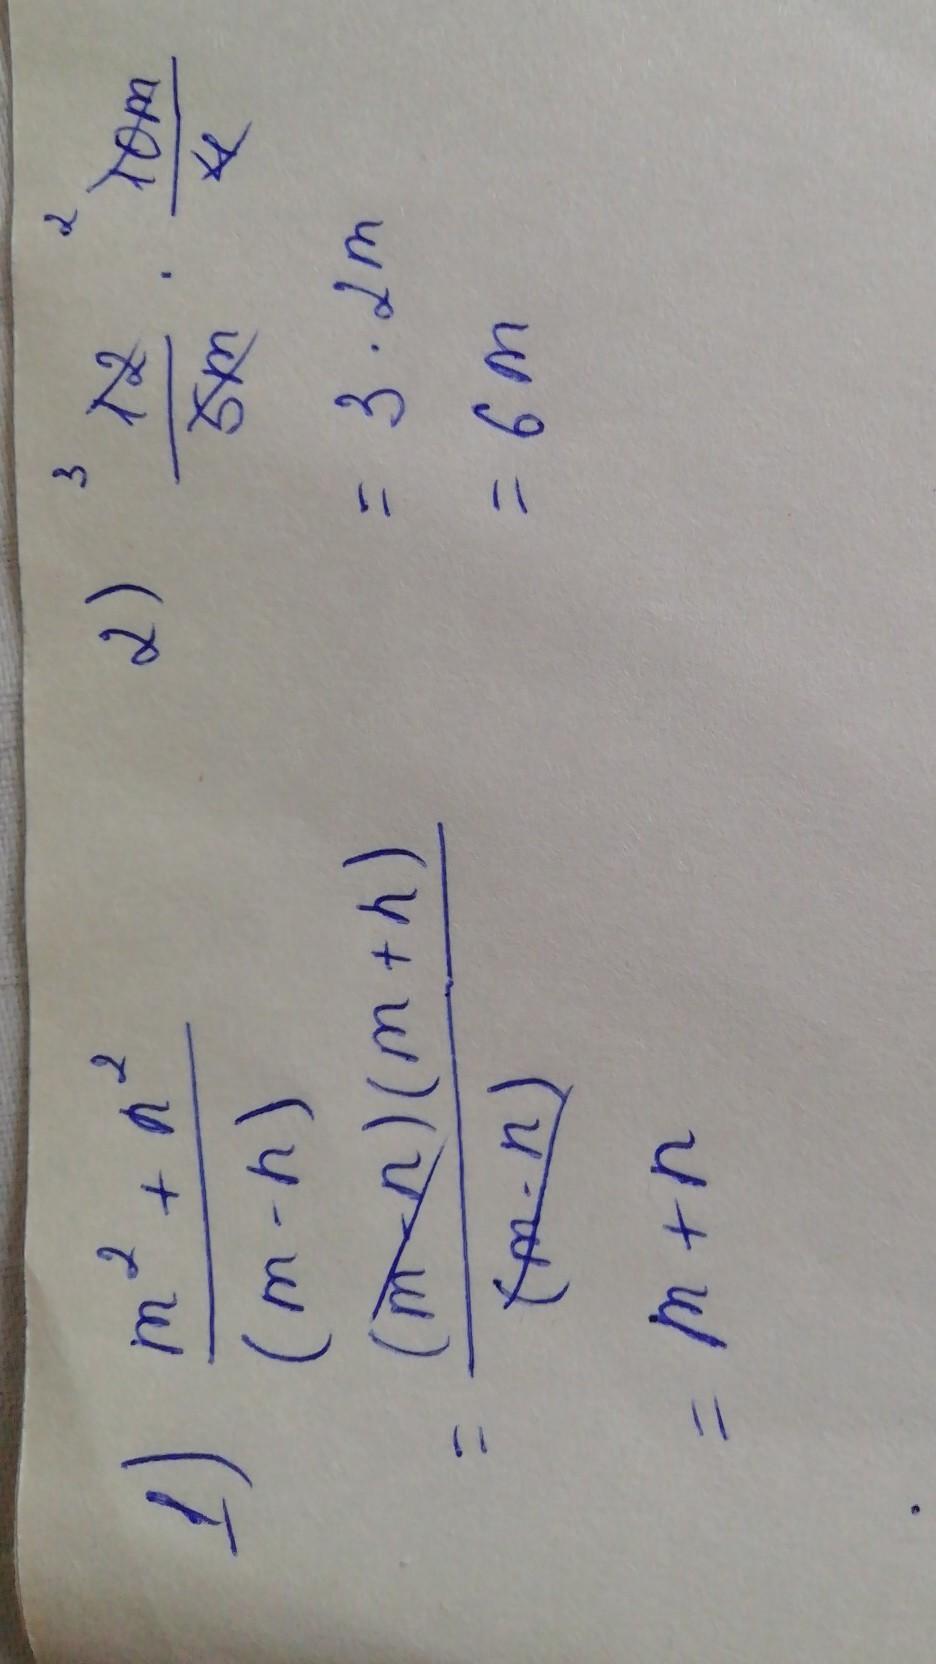 1) (m² + n²)/(m - n)
= (m - n)(m + n)/(m - n)
= m + n
2) ³ 12/5m · ² 10m/4
= 3 · 2m
= 6m